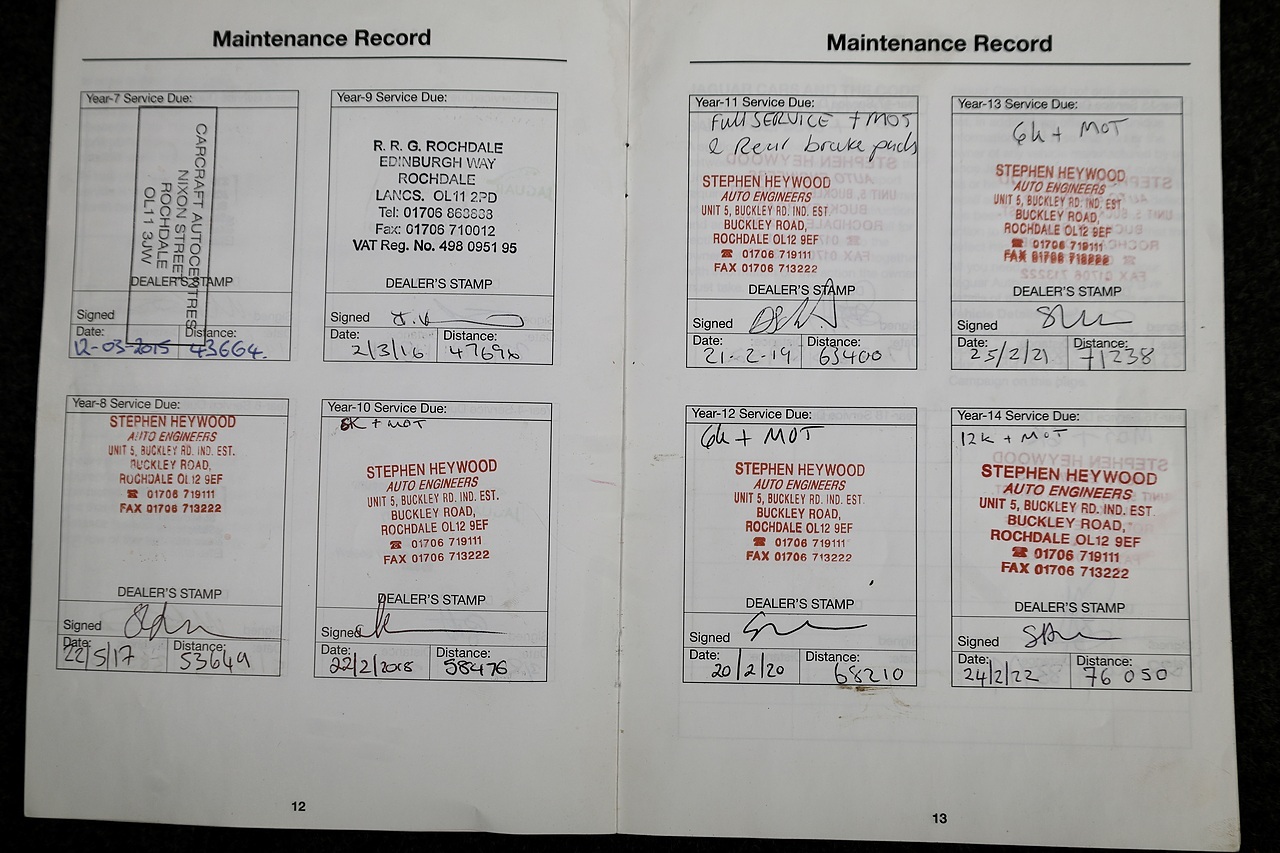 Maintenance Record
Year-7 Service Due:
CARCRAFT AUTOCENTRES
NIXON STREET
ROCHDALE
OL11 3JW
DEALER'S STAMP
Signed
Date: Distance:
12-03-2015 43664.
Year-9 Service Due:
R. R. G. ROCHDALE
EDINBURGH WAY
ROCHDALE
LANCS. OL11 2PD
Tel: 01706
Fax: 01706 710012
VAT Reg. No. 498 0951 95
DEALER'S STAMP
Signed
Date: Distance:
2/3/16
Year-8 Service Due:
STEPHEN HEYWOOD
AUTO ENGINEERS
UNIT 5, BUCKLEY RD. IND. EST.
BUCKLEY ROAD,
ROCHDALE OL12 9EF
☎ 01706 719111
FAX 01706 713222
DEALER'S STAMP
Signed
Date: Distance:
22/5/17 53649
Year-10 Service Due:
6K + MOT
STEPHEN HEYWOOD
AUTO ENGINEERS
UNIT 5, BUCKLEY RD. IND. EST.
BUCKLEY ROAD,
ROCHDALE OL12 9EF
☎ 01706 719111
FAX 01706 713222
DEALER'S STAMP
Signed
Date: Distance:
22/2/2018 58476
12
Maintenance Record
Year-11 Service Due:
Full SERVICE + MOT
& Rear brake pads
STEPHEN HEYWOOD
AUTO ENGINEERS
UNIT 5, BUCKLEY RD. IND. EST
BUCKLEY ROAD,
ROCHDALE OL12 9EF
☎ 01706 719111
FAX 01706 713222
DEALER'S STAMP
Signed
Date: Distance:
21-2-19 63400
Year-13 Service Due:
6k + MOT
STEPHEN HEYWOOD
AUTO ENGINEERS
UNIT 5, BUCKLEY RD. IND. EST
BUCKLEY ROAD,
ROCHDALE OL12 9EF
☎ 01706 719111
FAX 01706 713222
DEALER'S STAMP
Signed
Date: Distance:
25/2/21 71238
Year-12 Service Due:
6k + MOT
STEPHEN HEYWOOD
AUTO ENGINEERS
UNIT 5, BUCKLEY RD. IND. EST.
BUCKLEY ROAD,
ROCHDALE OL12 9EF
☎ 01706 719111
FAX 01706 713222
DEALER'S STAMP
Signed
Date: Distance:
20/2/20 68210
Year-14 Service Due:
12k + MOT
STEPHEN HEYWOOD
AUTO ENGINEERS
UNIT 5, BUCKLEY RD. IND. EST.
BUCKLEY ROAD,
ROCHDALE OL12 9EF
☎ 01706 719111
FAX 01706 713222
DEALER'S STAMP
Signed
Date: Distance:
24/2/22 76 050
13